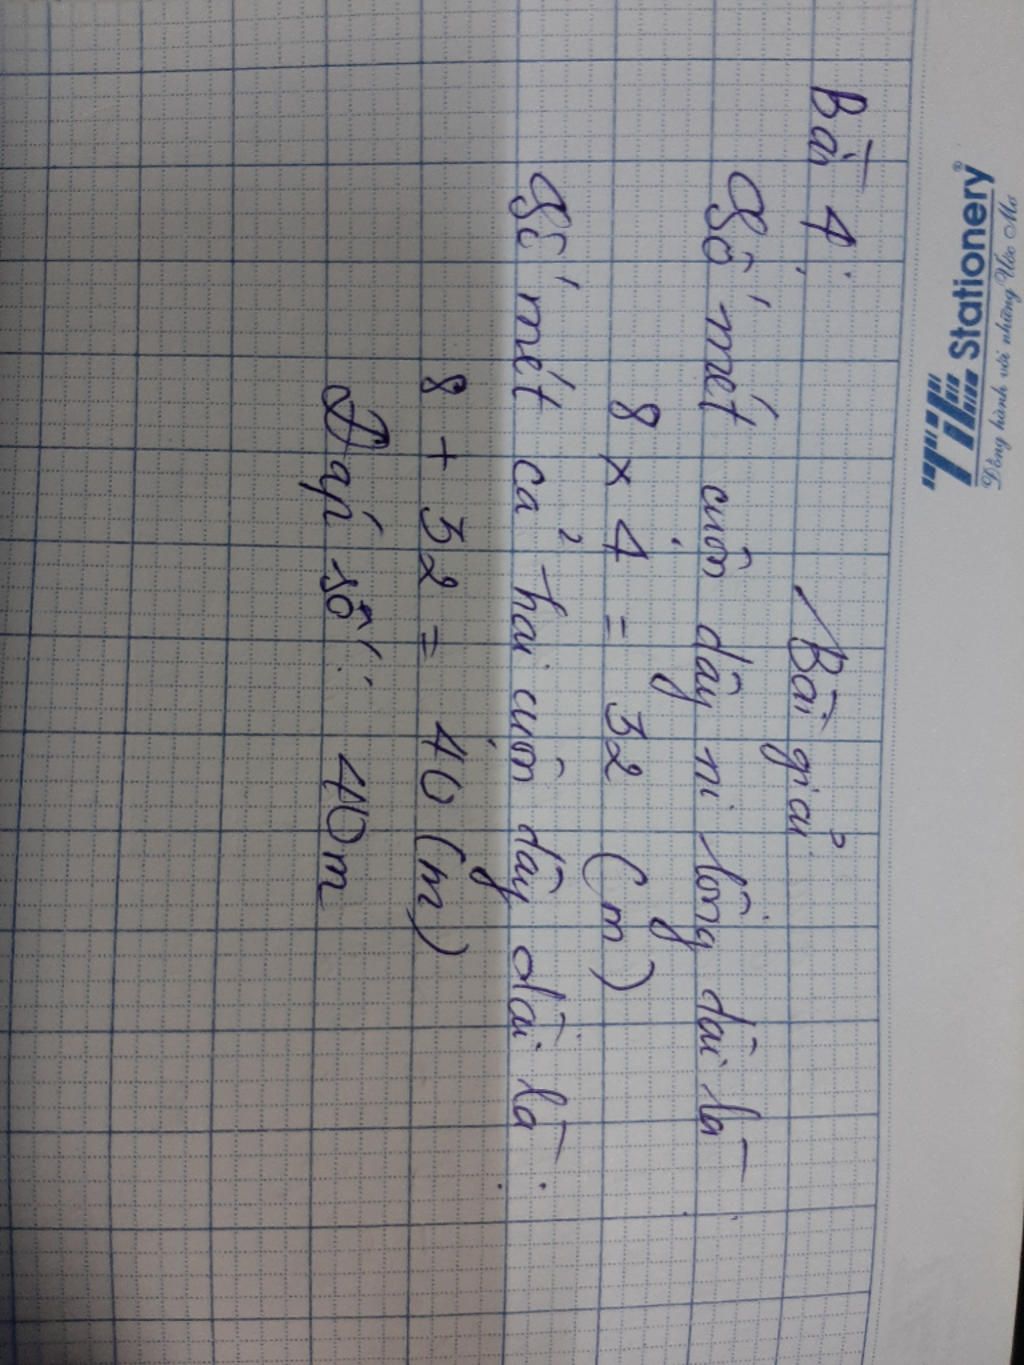 TiTi Stationery®
Đồng hành với những Ước Mơ
Bài 4:
Bài giải
Số mét cuôn dây ni lông dài là:
8 x 4 = 32 (m)
Số mét cả hai cuôn dây dài là:
8 + 32 = 40 (m)
Đáp số: 40m